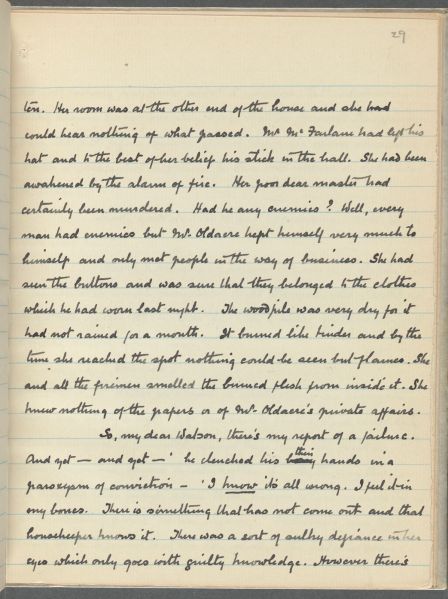 29
ten. Her room was at the other end of the house and she had
could hear nothing of what passed. Mr McFarlane had left his
hat and to the best of her belief his stick in the hall. She had been
awakened by the alarm of fire. Her poor dear master had
certainly been murdered. Had he any enemies? Well, every
man had enemies but Mr. Oldacre kept himself very much to
himself and only met people in the way of business. She had
seen the buttons and was sure that they belonged to the clothes
which he had worn last night. The woodpile was very dry for it
had not rained for a month. It burned like tinder and by the
time she reached the spot nothing could be seen but flames. She
and all the firemen smelled the burned flesh from inside it. She
knew nothing of the papers or of Mr. Oldacre's private affairs.
So, my dear Watson, there's my report of a failure.
And yet — and yet —' he clenched his thin hands in a
paroxysm of conviction — 'I know it's all wrong. I feel it in
my bones. There is something that has not come out and that
housekeeper knows it. There was a sort of sulky defiance in her
eyes which only goes with guilty knowledge. However there's